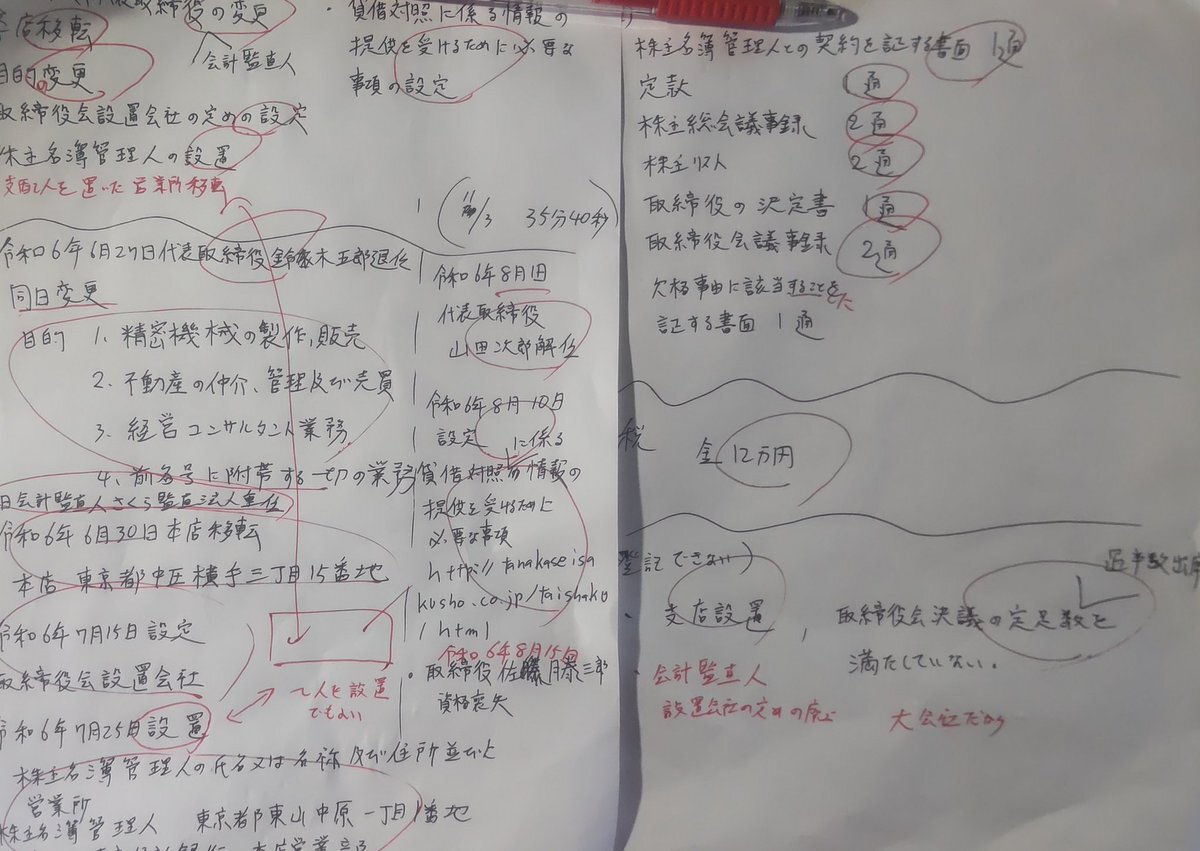 取締役の変更
本店移転
会計監査人
目的の変更
取締役会設置会社の定めの設定
株主名簿管理人の設置
支配人を置いた営業所移転
・貸借対照に係る情報の
提供を受けるために必要な
事項の設定
(11/3 35分40秒)
令和6年6月27日代表取締役鈴木五郎退任
同日変更
目的 1. 精密機械の製作,販売
2. 不動産の仲介、管理及び売買
3. 経営コンサルタント業務
4. 前各号に附帯する一切の業務
同日会計監査人さくら監査法人重任
令和6年6月30日本店移転
本店 東京都中区横手三丁目15番地
令和6年7月15日設定
取締役会設置会社
〜人を設置
でもよい
令和6年7月25日設置
株主名簿管理人の氏名又は名称及び住所並びに
営業所
株主名簿管理人 東京都東山中原一丁目1番地
本店営業部
令和6年8月1日
代表取締役
山田次郎解任
令和6年8月10日
設定
に係る
貸借対照表情報の
提供を受けるために
必要な事項
http://tanakaseisa
kusho.co.jp/taishaku
/html
令和6年8月15日
・取締役 佐藤三郎
資格喪失
株主名簿管理人との契約を証する書面 1通
定款 1通
株主総会議事録 2通
株主リスト 2通
取締役の決定書 1通
取締役会議事録 2通
欠格事由に該当することを
証する書面 1通
税 金12万円
登記できない)
過半数出席
・支店設置, 取締役会決議の定足数を
満たしていない。
・会計監査人
設置会社の定めの廃止 大会社だから